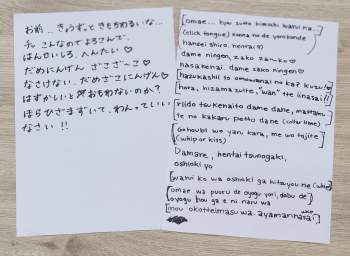 お前... きょうずっときもちわるいな...
チッ こんなのでよろこんで、
はんせいしろ へんたい♡
だめにんげん ざこざ〜こ♡
なさけない. だめざこにんげん♡
はずかしいと おもわないのか?
ほらひざまずいて、わんっていい
なさい!!
[omae... kyou zutto kimochi warui na...
(click tongue) konna no de yorokonde
hansei shiro. hentai♡
dame ningen, zako za~ko♡
nasakenai. dame zako ningen♡
[hazukashii to omowanai no ka? kuzu♡]
[hora, hizamazuite, "wan" tte iinasai!!
[riido tsukenaito dame dane, mattaku
te no kakaru petto dane (collar time)]
[Gohoubi wo yan kara, me wo tojite]
(whip or kiss)
Damare, hentai tsunogaki,
oshioki yo
[warui ko wa oshioki ga hitsuyou ne (whip)]
[omae wa puuru de oyogu yori, dobu de
oyogu hou ga e ni naru wa
[mou okotteimasu wa. ayamarinasai]